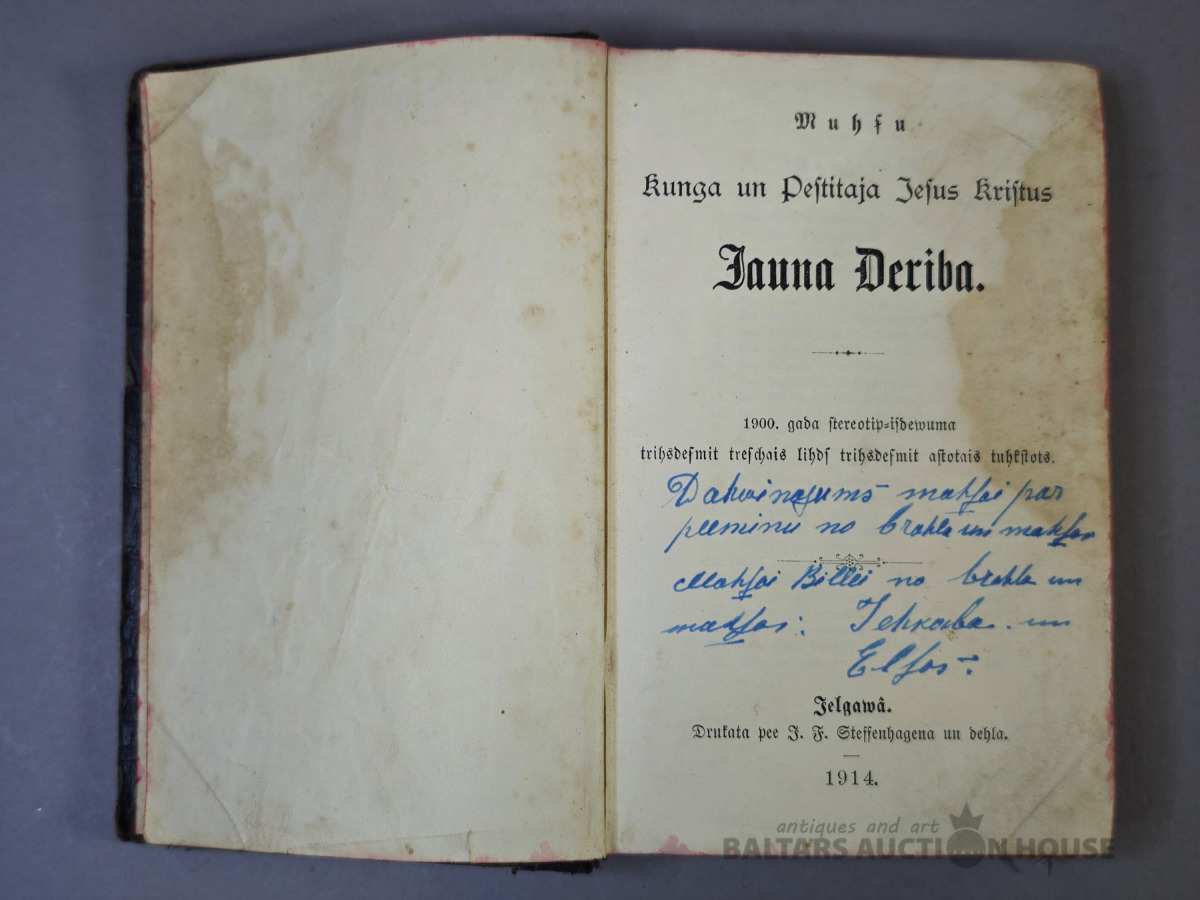 Muhſu
Kunga un Peſtitaja Jeſus Kriſtus
Jauna Deriba.
1900. gada ſtereotip-iſdewuma
trihsdeſmit treſchais lihdſ trihsdeſmit aſtotais tuhkſtots.
Dahwinajums mahſai par
peeminu no brahla un mahſas
Mahſai Billei no brahla un
mahſas: Jehkaba un
Elſas:
Jelgawâ.
Drukata pee J. F. Steffenhagena un dehla.
1914.
antiques and art
BALTARS AUCTION HOUSE